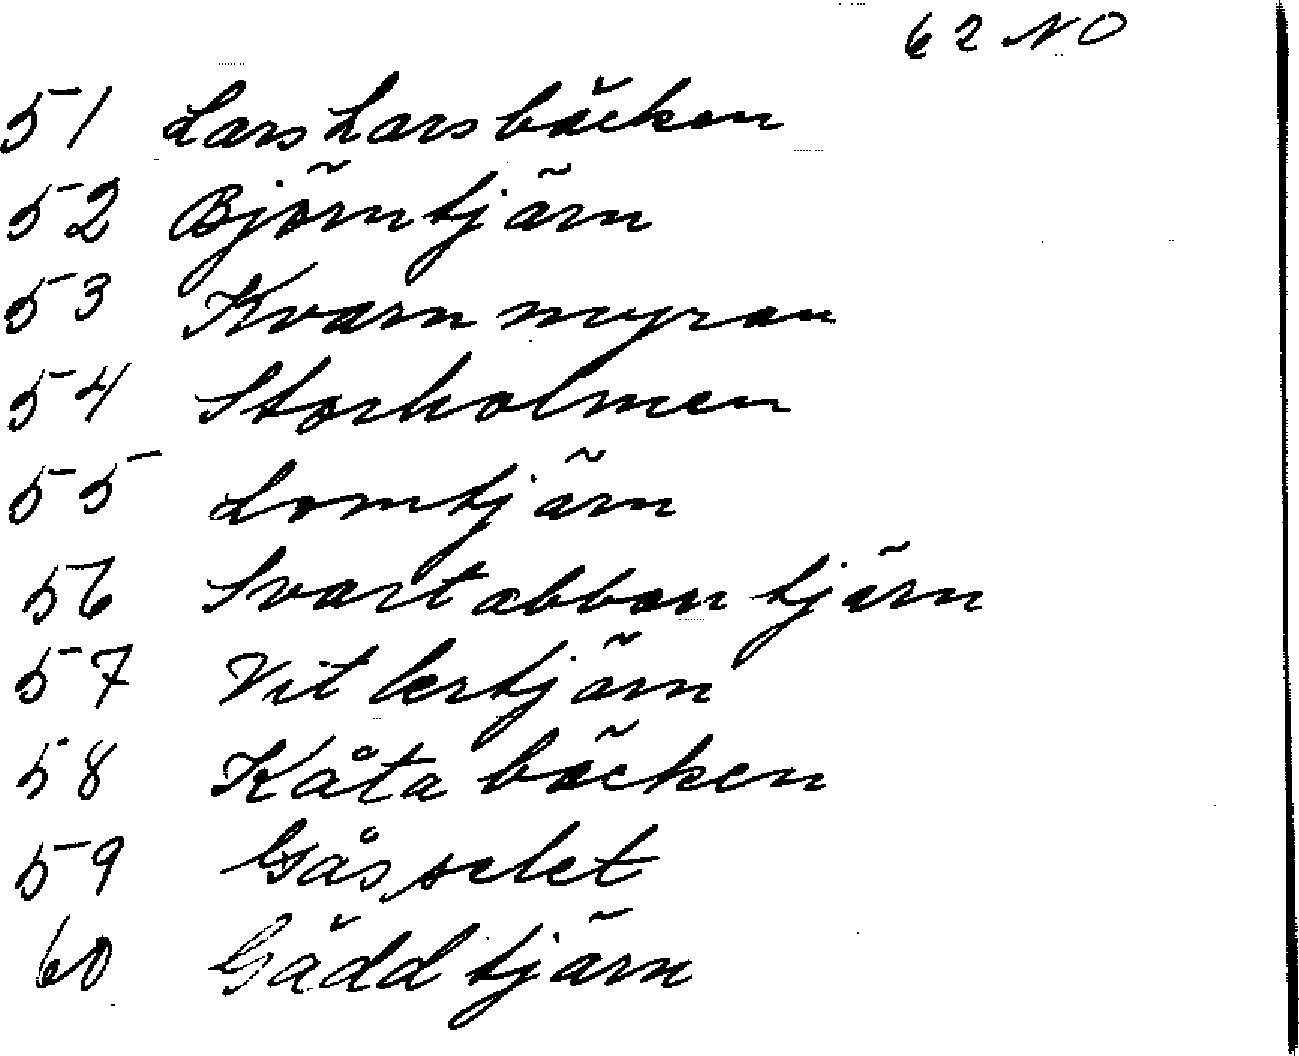 62 NO
51 Lars Larsbäcken
52 Björntjärn
53 Kvarnmyran
54 Storholmen
55 Lomtjärn
56 Svartabbontjärn
57 Vitlertjärn
58 Kåtabäcken
59 Gåsselet
60 Gäddtjärn